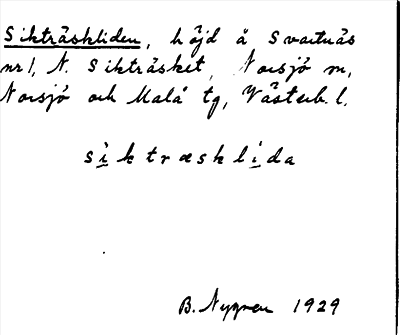 Sikträskliden, höjd å Svartnäs
nr 1, N. Sikträsket, Norsjö sn,
Norsjö och Malå tg, Västerb. l.
siktræsklida
B. Nygren 1929